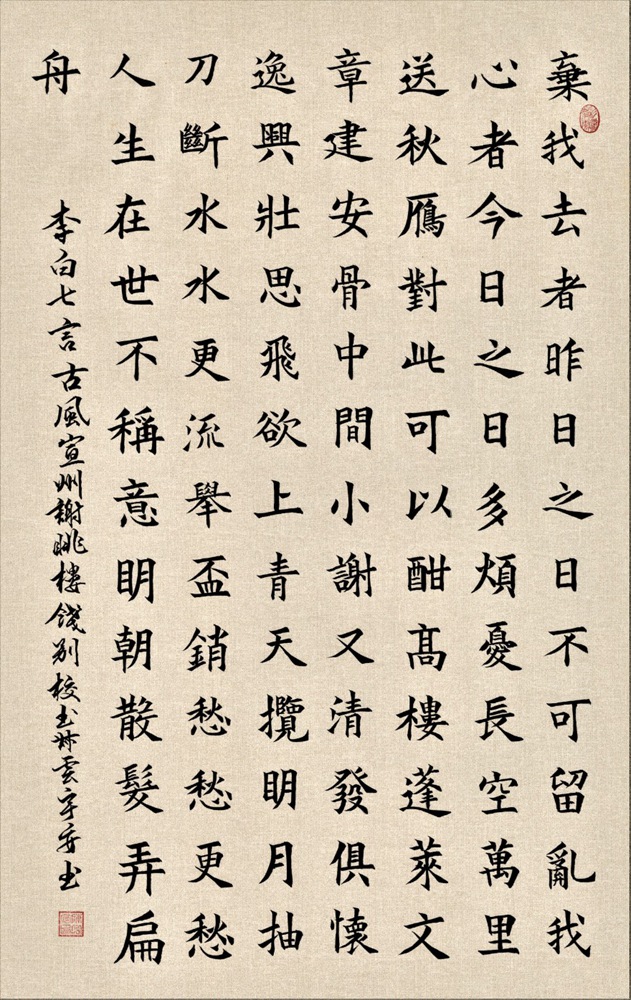 棄我去者昨日之日不可留亂我
心者今日之日多煩憂長空萬里
送秋鴈對此可以酣髙樓蓬萊文
章建安骨中間小謝又清發俱懷
逸興壯思飛欲上青天攬眀月抽
刀斷水水更流舉盃銷愁愁更愁
人生在世不稱意眀朝散髮弄扁
舟
李白七言古風宣州謝朓樓餞別校书叔雲 书